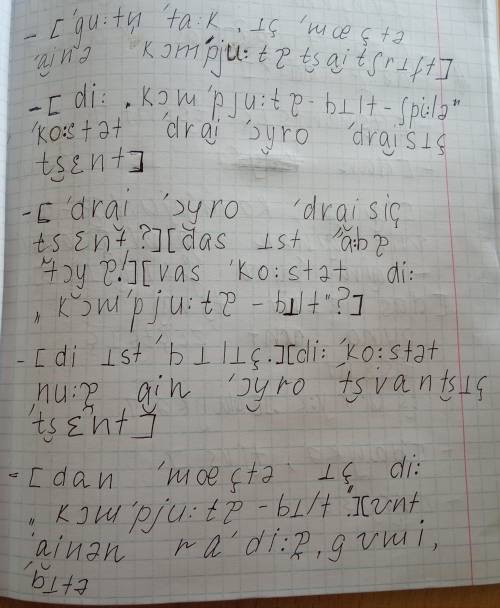 - [ ˈguːtn̩ ˈtaːk , ɪç ˈmœçtə
ˈai̯nə kɔmˈpjuːtɐ tsai̯tʃrɪft]
- [ diː „kɔmˈpjuːtɐ - bɪlt - ʃpiːlə“
ˈkoːstət ˈdrai̯ ˈɔy̯ro ˈdrai̯sɪç
tsɛnt]
- [ ˈdrai̯ ˈɔy̯ro ˈdrai̯siç
tsɛnt?][das ɪst ˈaːbɐ
ˈtɔy̯ɐ!][vas ˈkoːstət diː
„kɔmˈpjuːtɐ - bɪlt“?]
- [di ɪst ˈbɪlɪç.][diː ˈkoːstət
nuːɐ ai̯n ˈɔy̯ro ˈtsvantsɪç
ˈtsɛnt]
- [dan ˈmœçtə ɪç diː
„kɔmˈpjuːtɐ - bɪlt“.][ʊnt
ˈai̯nən raˈdiːɐ̯ˌgʊmi,
ˈbɪtə